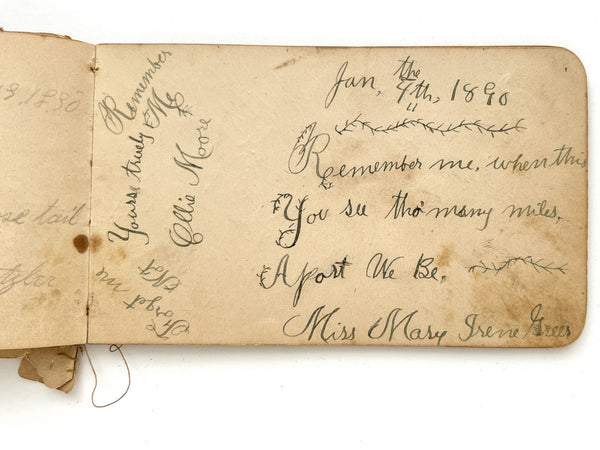 Jan, the 9th, 1890
Remember me, when this
You see tho' many miles,
Apart We Be.
Miss Mary Irene Greer
Remember
Me
Yours truely
Ellie Moore
Forget me
Not
9, 1890
tail